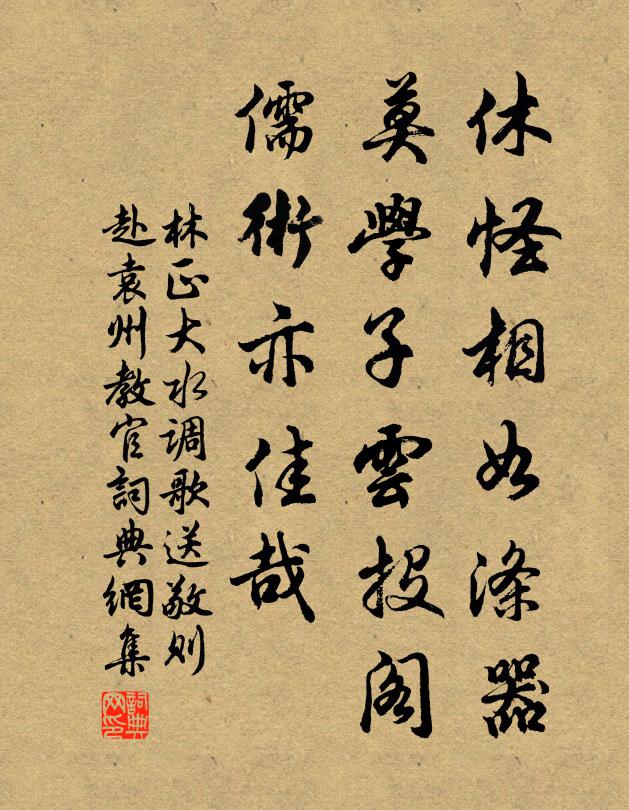 休怪相如涤器
莫學子雲投阁
儒術亦佳哉
林正大水调歌送敬则
赴袁州教官詞典網集
詞典
网印